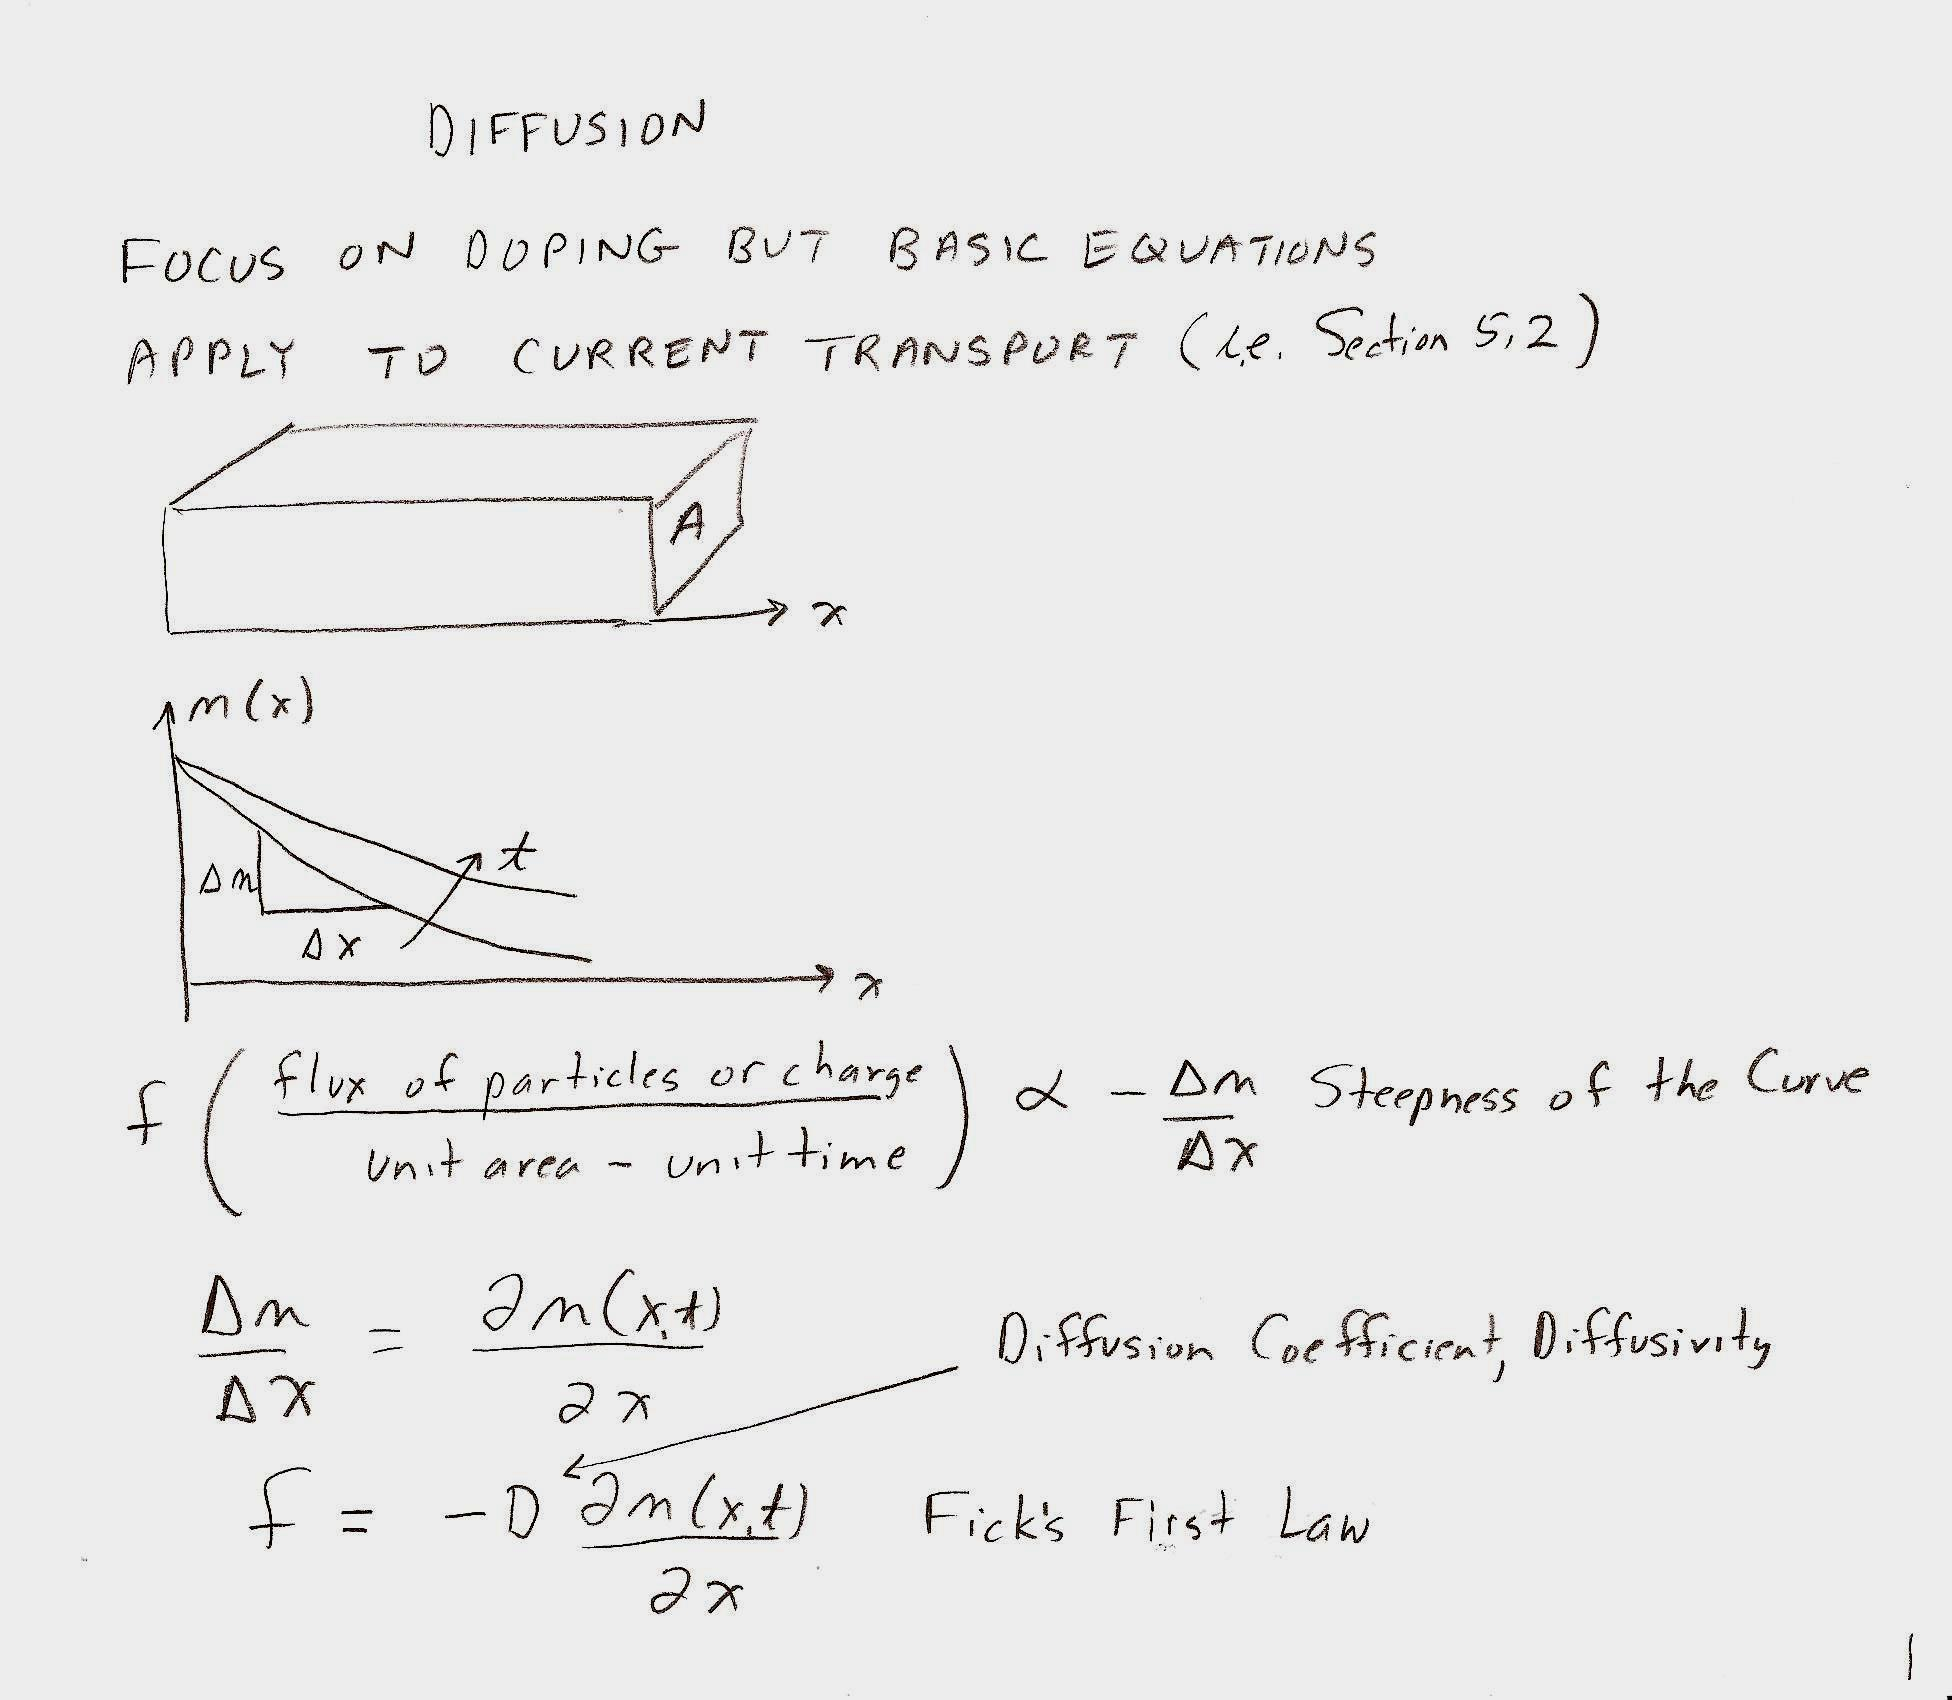 DIFFUSION
FOCUS ON DOPING BUT BASIC EQUATIONS
APPLY TO CURRENT TRANSPORT (i.e. Section 5.2)
A
x
n(x)
t
Δn
Δx
x
f ( flux of particles or charge / unit area - unit time ) ∝ - Δn / Δx Steepness of the Curve
Δn / Δx = ∂n(x,t) / ∂x
Diffusion Coefficient, Diffusivity
f = -D ∂n(x,t) / ∂x Fick's First Law
1